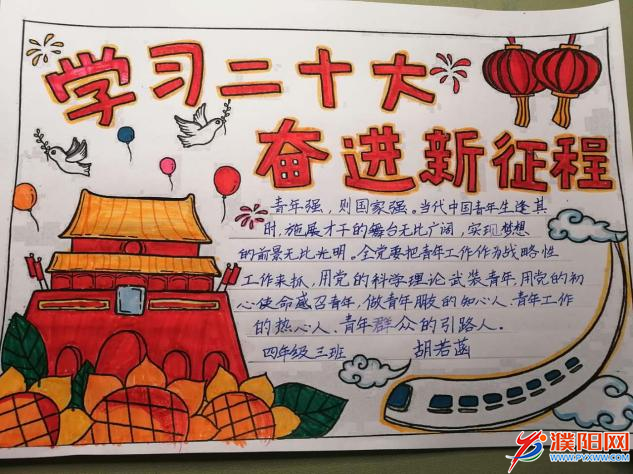 学习二十大
奋进新征程
青年强，则国家强。当代中国青年生逢其
时，施展才干的舞台无比广阔，实现梦想
的前景无比光明。全党要把青年工作作为战略性
工作来抓，用党的科学理论武装青年，用党的初
心使命感召青年，做青年朋友的知心人、青年工作
的热心人、青年群众的引路人。
四年级三班 胡若菡
濮阳网
www.pyxww.com